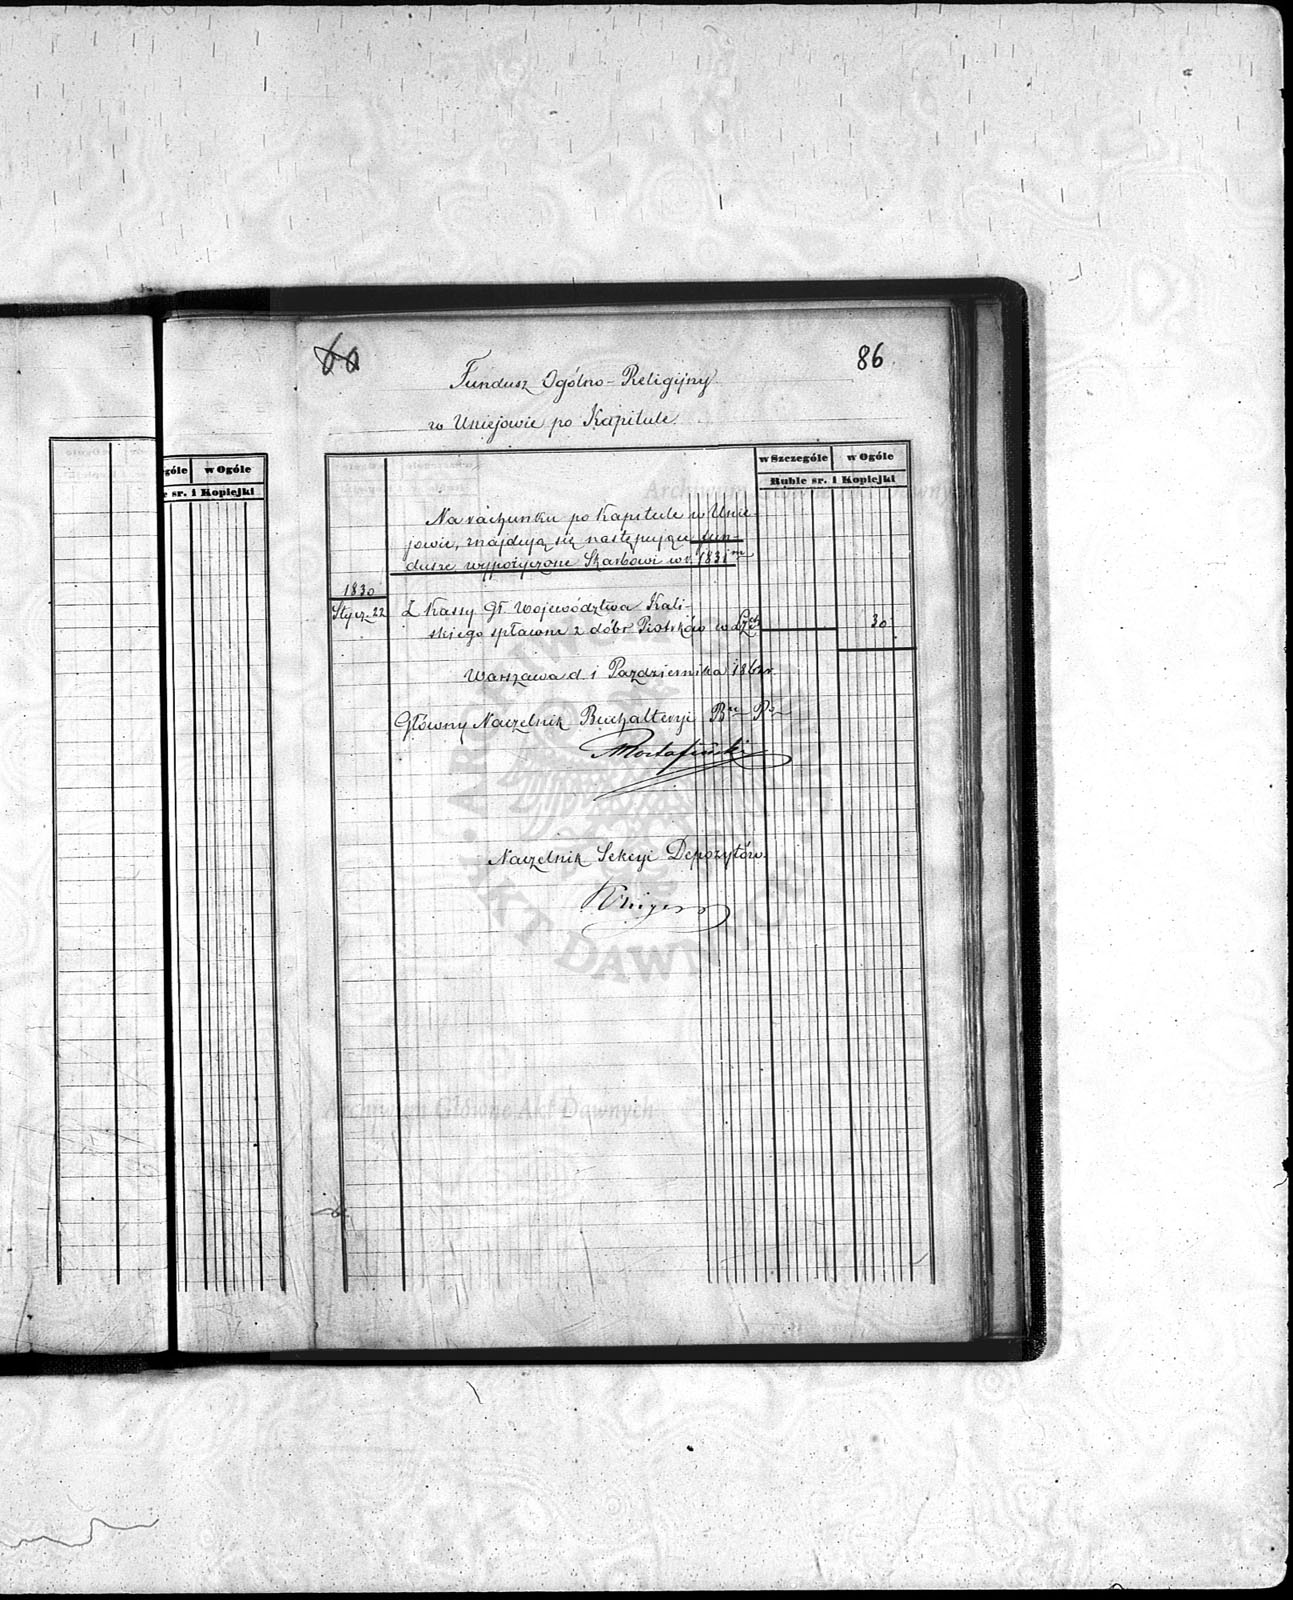 86
Fundusz Ogólno-Religijny
w Uniejowie po Kapitule.
w Szczególe w Ogóle
Ruble sr. i Kopiejki
góle w Ogóle
sr. i Kopiejki
Na rachunku po Kapitule w Unie-
jowie, znajdują się następujące fun-
dusze wypożyczone Skarbowi w r. 1831
1830
Stycz. 22 Z Kassy Gł. Województwa Kali-
skiego spławne z dóbr Piotrków w 30
Warszawa d. 1 Października 186 r.
Główny Naczelnik Buchalteryi
Naczelnik Sekcyi Depozytów.
Archiwum Główne Akt Dawnych
Archiwum Główne Akt Dawnych